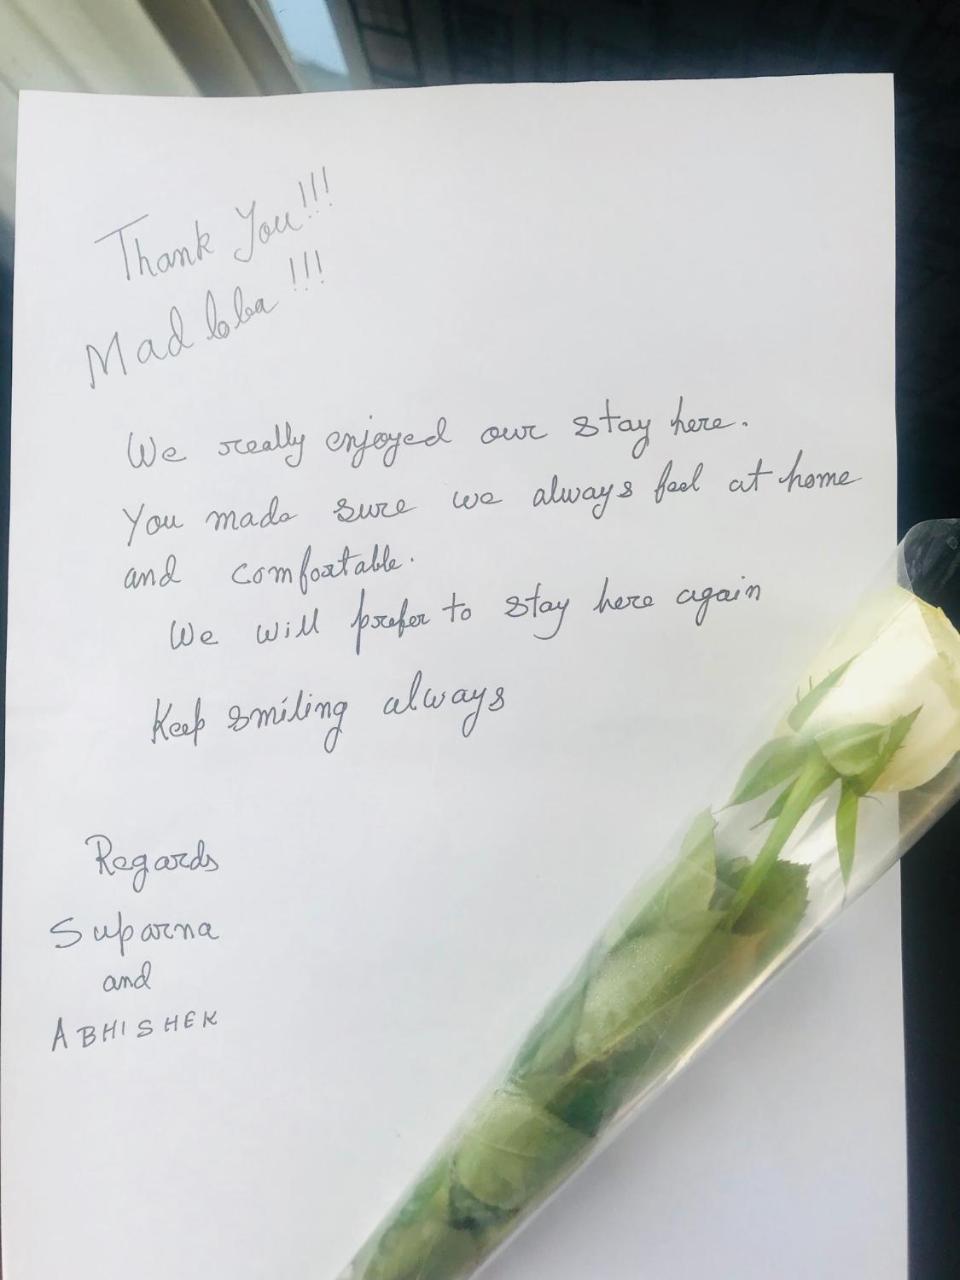 Thank You!!!
Madloba!!!
We really enjoyed our stay here.
You made sure we always feel at home
and comfortable.
We will prefer to stay here again
Keep smiling always
Regards
Suparna
and
ABHISHEK